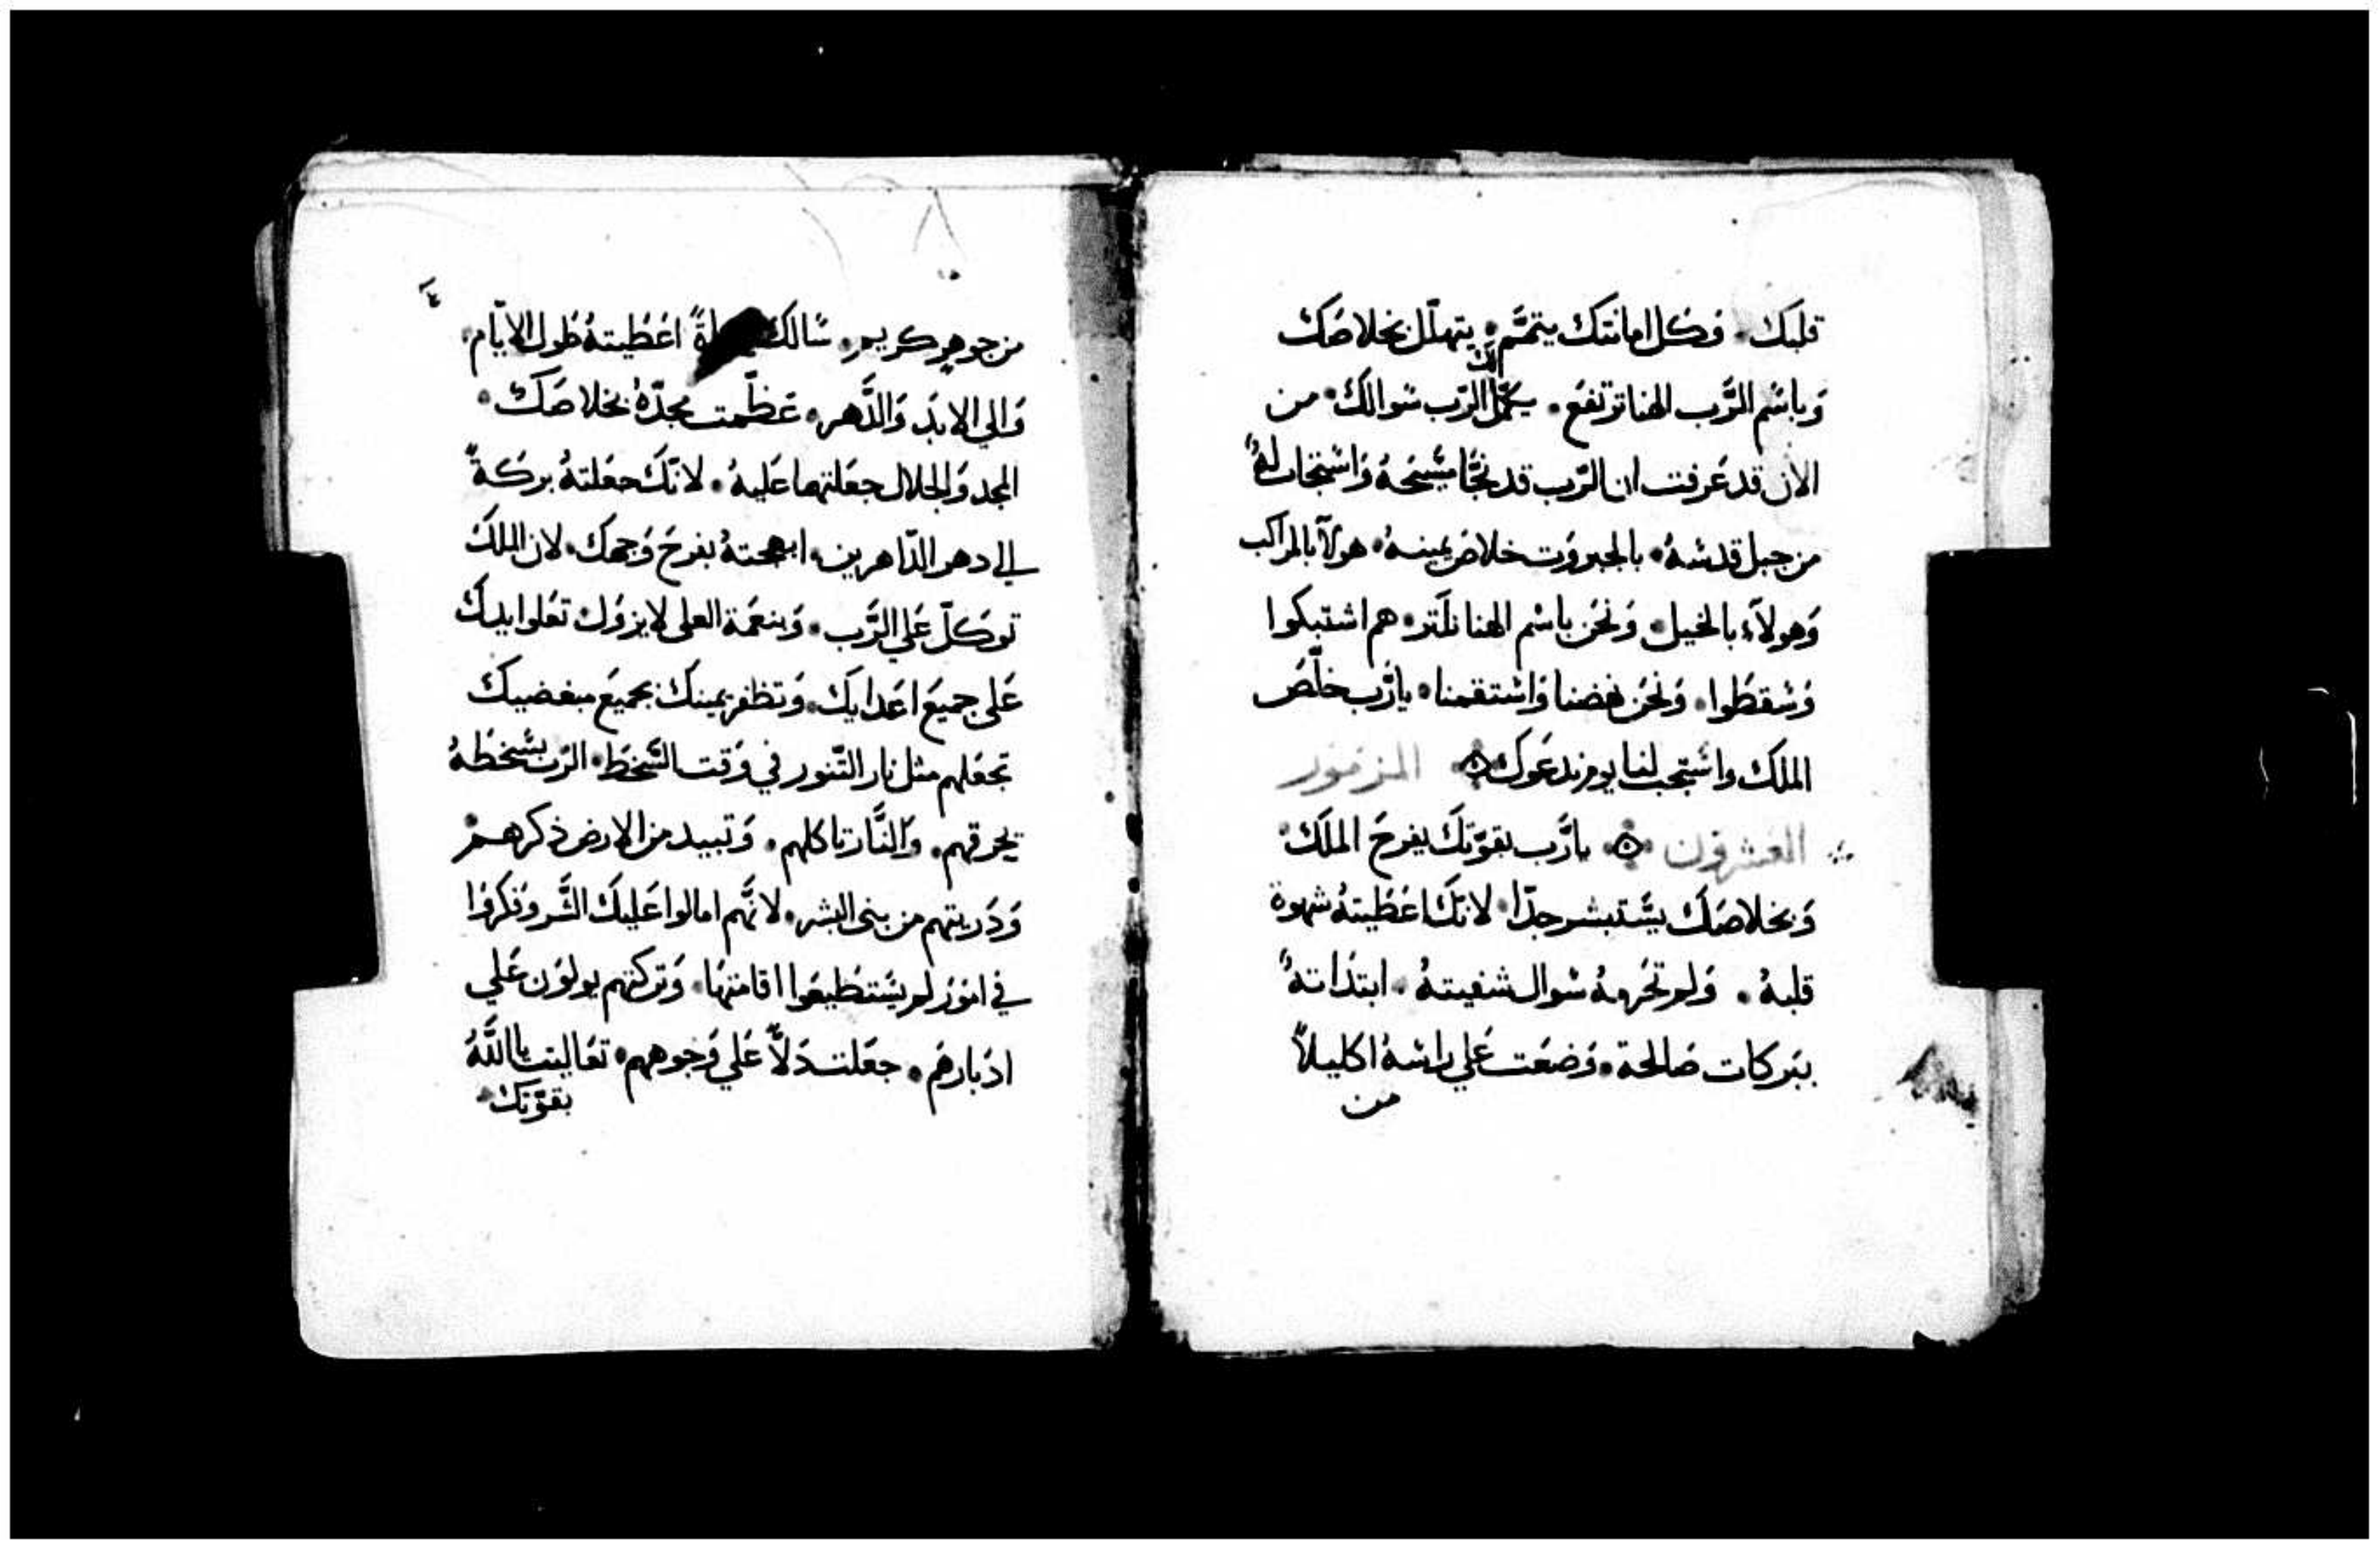 قلبك. وَكل امانتك يتمّم. يتهلّل بخلاصَك
وَباسْم الرَّب الهنا نرتفعَ. يكمّل لك الرّب سْوالك. من
الان قد عَرفت ان الرّب قد نجّا مسْيحَهُ وَاسْتجابَ لهُ
من جبل قدسْهُ. بالجبروَت خلاصَ يمينهُ. هولآء بالمراكب
وَهولآء بالخيل. وَنحَن باسْم الهنا نلَتر. هم اشتبكوا
وَسْقطَوا. وَنحَن نهضنا وَاسْتقمنا. يارَّب خلّصَ
الملك واسْتجب لنا يومر ندعَوك. المزمَور
العَشرَون. يارَّب بقوّتكَ يفرحَ الملَك
وَبخلاصَك يسْتبشر جدّا. لانّك اعَطَيتهُ شهوة
قلبهُ. وَلم تحَرمهُ سْوال شفيتهُ. ابتدَاتهُ
ببَركات صَالحة. وَضعَت عَلي راسْهُ اكليلاً
من
من جوهرٍ كريم. سْالك اعَطَيتهُ طَول الايّام
وَالي الابدَ وَالدَّهر. عَظّمت مجدّهُ بخلاصَك
المجد وَالجلال جعَلتهما عَليهُ. لانّكَ جعَلتهُ بركَةً
الي دهر الدّاهرين. ابهجتهُ بفرحَ وَجهك. لان الملكَ
توكَلّ عَلي الرَّب. وَبنعَمَة العلى لا يزوَل. تعَلوا يدك
عَلى جميعَ اعَدايكَ. وَتظفر يمينك بجميعَ مبغضيك
تجعَلهم مثل نار التّنور في وَقت السّْخطَ. الرّب بسْخطَهُ
يحَرقهم. وَالنَّار تاكلهم. وَتبيد من الارض ذكرهم
وَذَريتهم من بنى البشر. لانَّهم امالوا عَليك الشَّر وَفكروَا
في امَورَ لم يسْتطَيعَوا اقامتهَا. وَتركتهم يولوَن عَلي
ادَبارهَم. جعَلت دَلاًّ عَلي وَجوههم. تعَاليت يااللَّهُ
بقوّتك